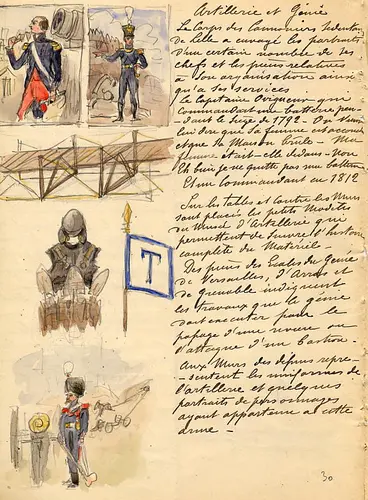 Artillerie et Génie
Le Corps des Canonniers Sédentaires
de Lille a envoyé les portraits
d'un certain nombre de ses
chefs et les pièces relatives
à son organisation ainsi
qu'à ses services
Le Capitaine Ovigneur qui
Commandait une batterie pen-
dant le Siège de 1792 - On vient
lui dire que sa femme est accouchée
et que sa Maison brule - Ma
femme était-elle dedans - Non
Eh bien je ne quitte pas ma batterie
Et un Commandant en 1812
Sur les tables et contre les Murs
sont placés les petits Modèles
du Musée d'Artillerie qui
permettent de suivre l'histoire
complète du Matériel -
Des pièces des Écoles du Génie
de Versailles, d'Arras et
de Grenoble indiquent
les travaux que le génie
doit exécuter pour le
passage d'une rivière ou
l'attaque d'un bastion -
Aux Murs des dessins repré-
sentent les uniformes de
l'artillerie et quelques
portraits de personnages
ayant appartenu à cette
arme -
T
30